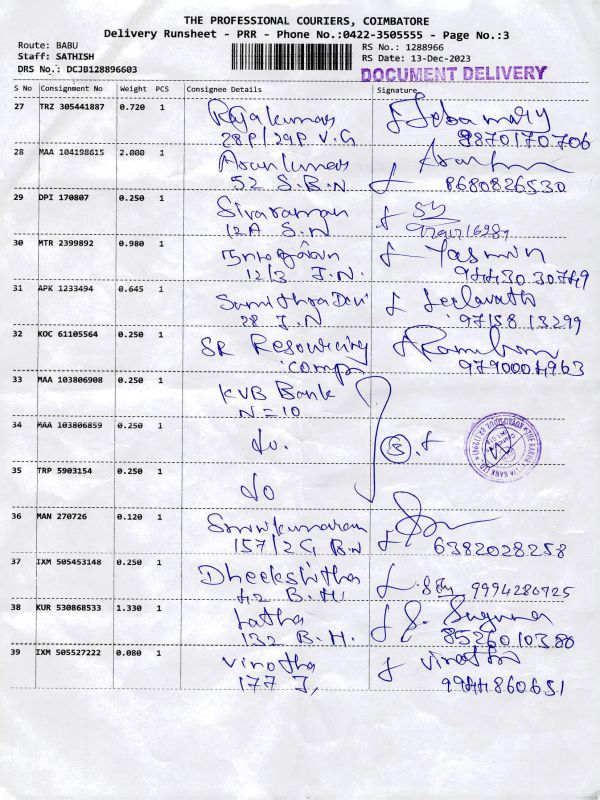 THE PROFESSIONAL COURIERS, COIMBATORE
Delivery Runsheet - PRR - Phone No.:0422-3505555 - Page No.:3
Route: BABU
RS No.: 1288966
Staff: SATHISH
RS Date: 13-Dec-2023
DRS No.: DCJB128896603
DOCUMENT DELIVERY
S No Consignment No Weight PCS Consignee Details Signature
27 TRZ 305441887 0.720 1 Rajakumar
28P/29P V.G 9870170706
28 MAA 104198615 2.000 1 Arunkumar
52 S.B.N 8680826530
29 DPI 170807 0.250 1 Sivaraman
12A S.N
30 MTR 2399892 0.980 1 Yasmin
12/3 J.N. 94430 30749
31 APK 1233494 0.645 1 Sumithra Devi Leelavathi
28 J.N 97158 13299
32 KOC 61105564 0.250 1 SR Resourcing
comps 9790004963
33 MAA 103806908 0.250 1 KVB Bank
N=10
34 MAA 103806859 0.250 1 do. 3
35 TRP 5903154 0.250 1 do
36 MAN 270726 0.120 1
157/2G B.N 6382028258
37 IXM 505453148 0.250 1 Dheekshitha 9994280725
42 B.H.
38 KUR 530868533 1.330 1 Latha S. Suguna
132 B.H. 8526010380
39 IXM 505527222 0.080 1 Vinotha Vinothi
177 J, 9944860651